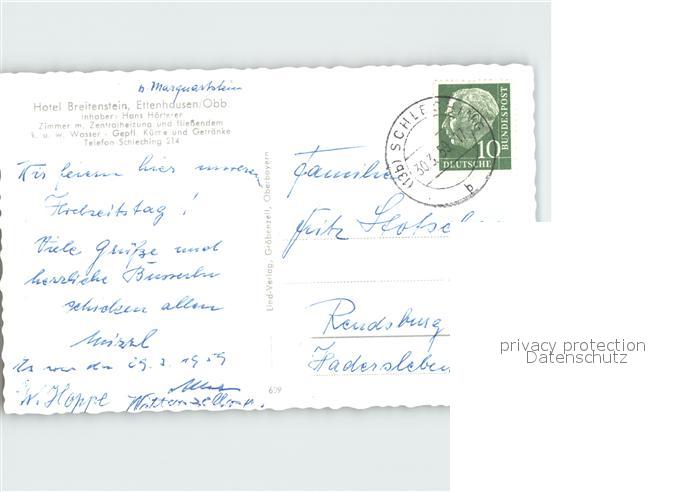 b Marquartstein
Hotel Breitenstein, Ettenhausen/Obb
Inhaber: Hans Hörterer
Zimmer m. Zentralheizung und fließendem
k. u. w. Wasser - Gepfl. Küche und Getränke
Telefon Schleching 214
Wir feiern hier unseren
Hochzeitstag!
Viele Grüße und
herzliche Busserln
schicken allen
Mizzl
Es war der 29. 3. 1959
W. Hoppe
Lind-Verlag, Gröbenzell, Oberbayern
609
(13b) SCHLECHING
30.3.59
b
10
DEUTSCHE
BUNDESPOST
Familie
Fritz
Rendsburg
Hadersleben
privacy protection
Datenschutz